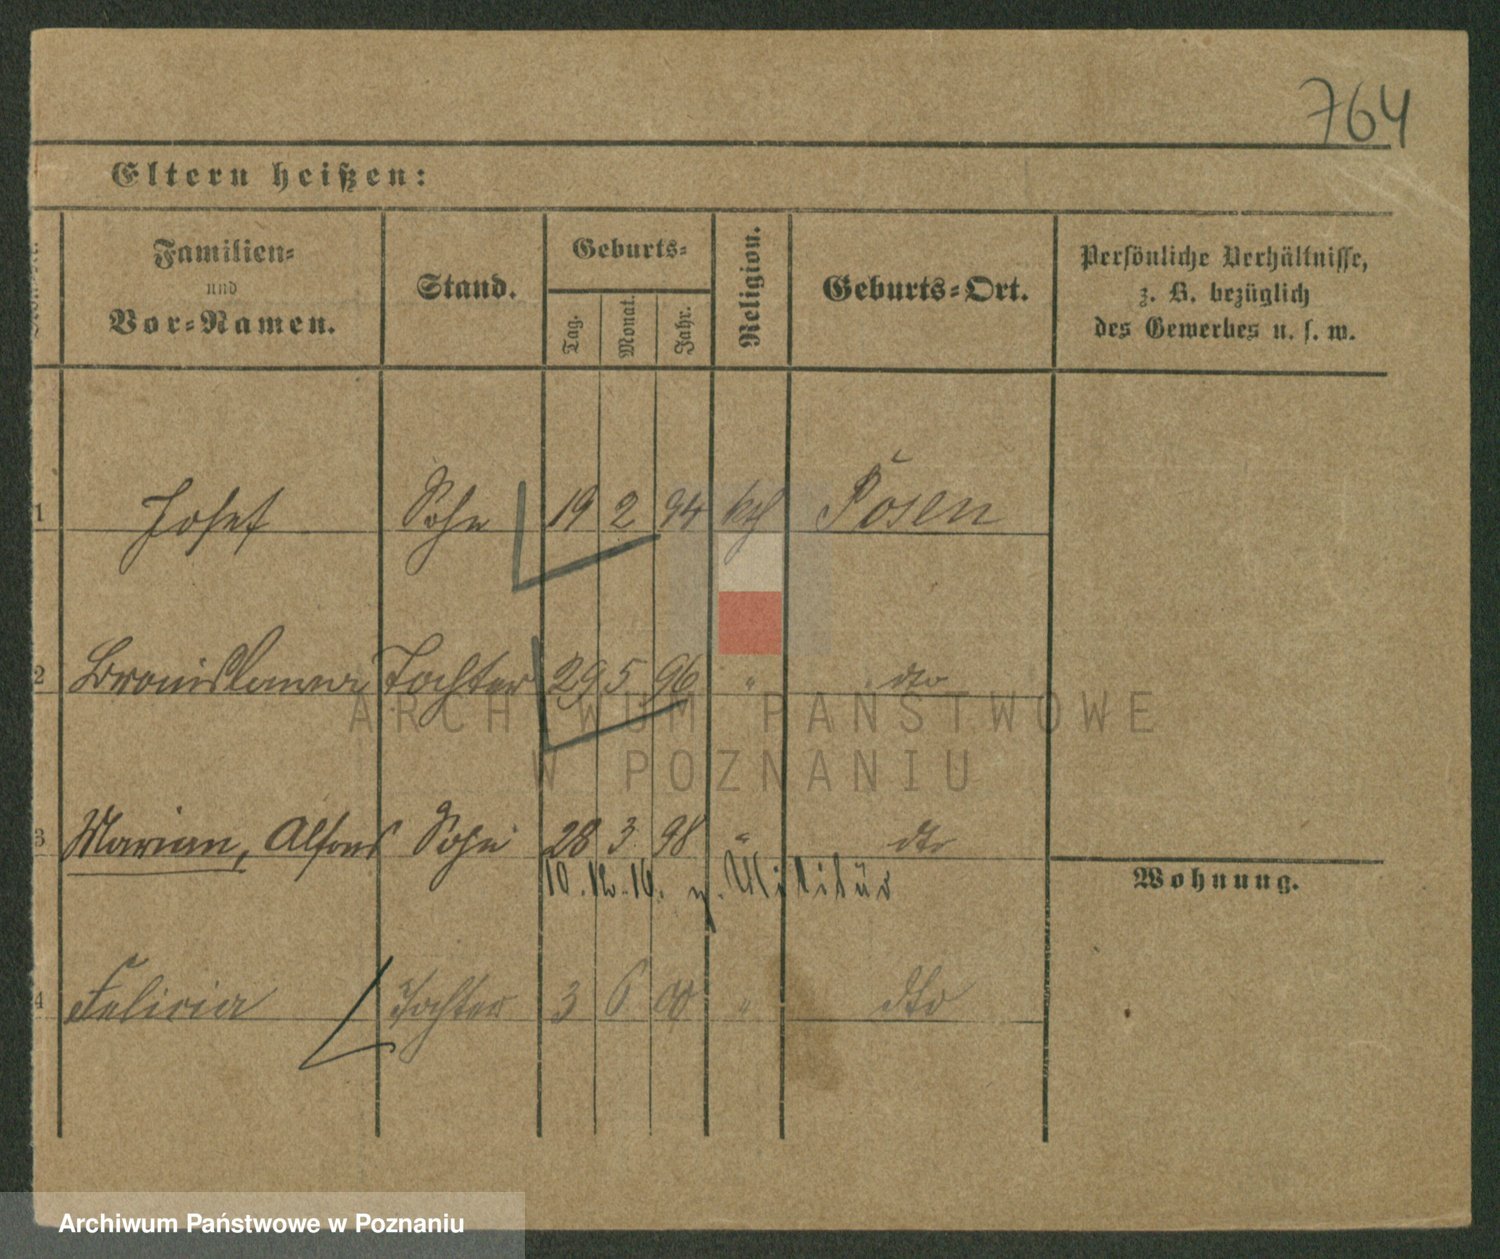 764
Eltern heißen:
Familien-
und
Vor-Namen.
Stand.
Geburts-
Tag.
Monat.
Jahr.
Religion.
Geburts-Ort.
Persönliche Verhältnisse,
z. B. bezüglich
des Gewerbes u. s. w.
1 Josef Sohn 19 2 94 kth Posen
2 Bronislawa Tochter 29 5 96 " dto
3 Marian, Alfons Sohn 28 3 98 " dto
10.12.16. z. Militär
Wohnung.
4 Felicia Tochter 3 6 00 " dto
ARCHIWUM PAŃSTWOWE
W POZNANIU
Archiwum Państwowe w Poznaniu